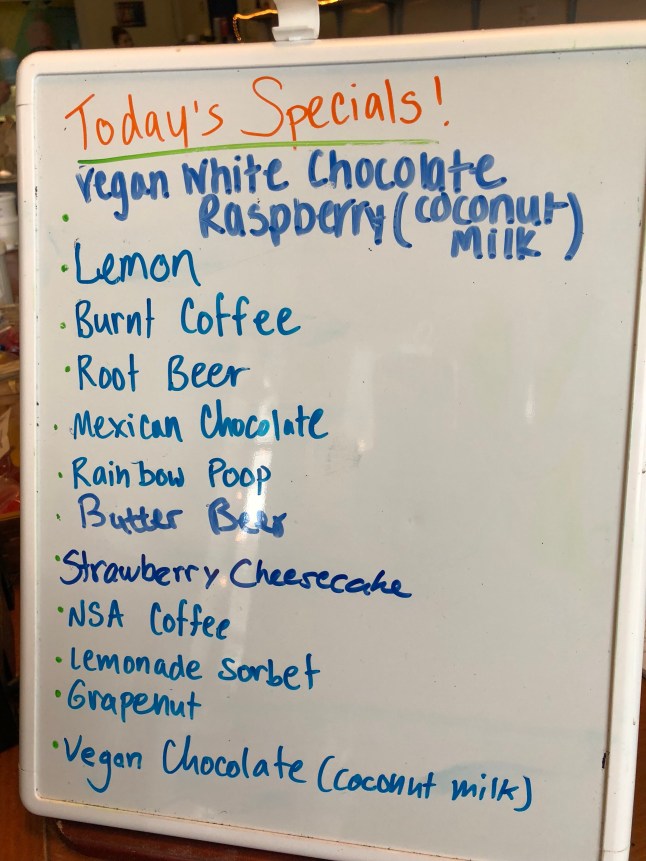 Today's Specials!
Vegan White Chocolate
Raspberry (coconut
Milk)
• Lemon
• Burnt Coffee
• Root Beer
• Mexican Chocolate
• Rainbow Poop
• Butter Beer
• Strawberry Cheesecake
• NSA Coffee
• Lemonade Sorbet
• Grapenut
• Vegan Chocolate (coconut milk)